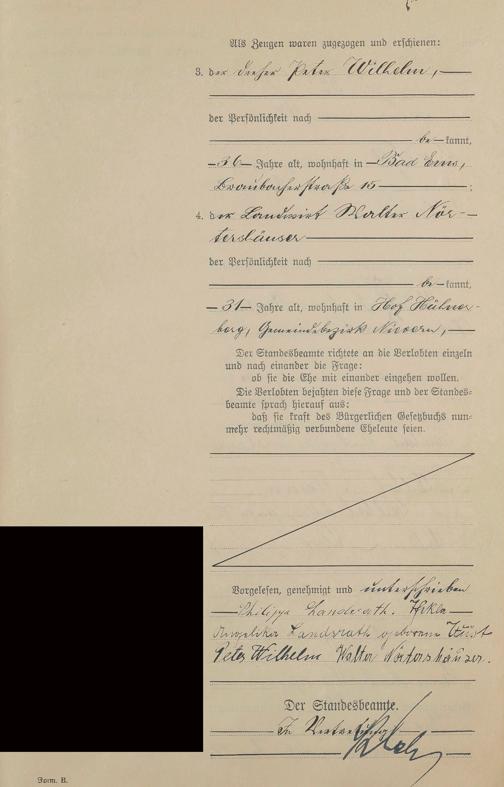 Als Zeugen waren zugezogen und erschienen:
3. der Dreher Peter Wilhelm,
der Persönlichkeit nach
be kannt,
36 Jahre alt, wohnhaft in Bad Ems,
Braubacherstraße 15 ;
4. der Landwirt Walter Nör-
tershäuser
der Persönlichkeit nach
be kannt,
31 Jahre alt, wohnhaft in Hof Hühner-
berg, Gemeindebezirk Nievern,
Der Standesbeamte richtete an die Verlobten einzeln
und nach einander die Frage:
ob sie die Ehe mit einander eingehen wollen.
Die Verlobten bejahten diese Frage und der Standes=
beamte sprach hierauf aus:
daß sie kraft des Bürgerlichen Gesetzbuchs nun=
mehr rechtmäßig verbundene Eheleute seien.
Vorgelesen, genehmigt und unterschrieben
Philipp Landsrath.
Angelika Landsrath geborene Wüst
Peter Wilhelm Walter Nörtershäuser.
Der Standesbeamte.
In Vertretung
Form. B.